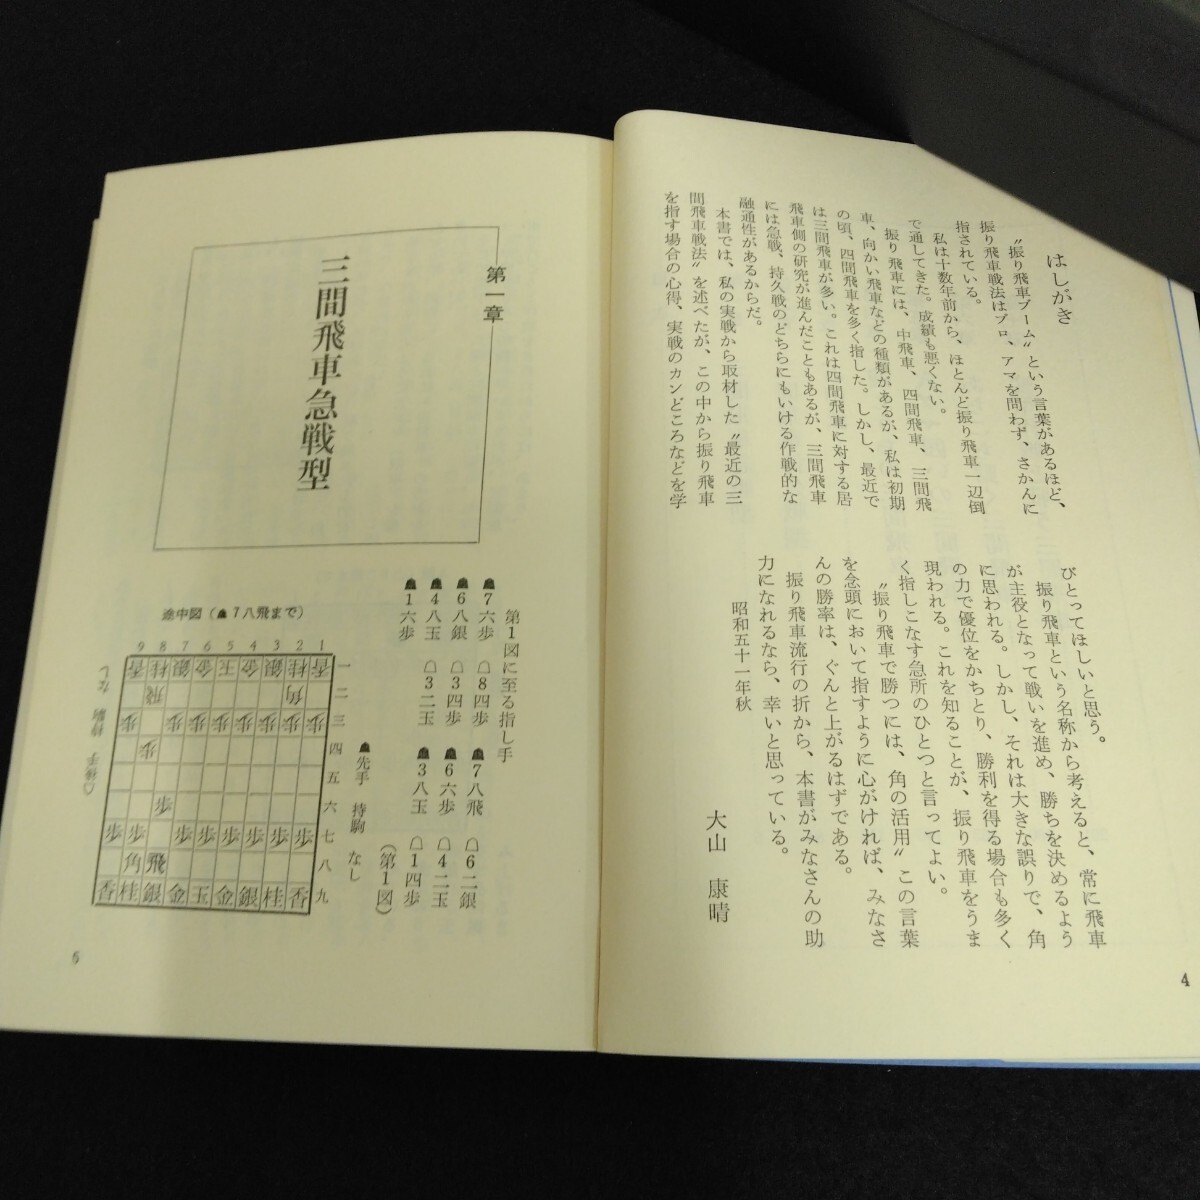 はしがき
〝振り飛車ブーム〟という言葉があるほど、
振り飛車戦法はプロ、アマを問わず、さかんに
指されている。
私は十数年前から、ほとんど振り飛車一辺倒
で通してきた。成績も悪くない。
振り飛車には、中飛車、四間飛車、三間飛
車、向かい飛車などの種類があるが、私は初期
の頃、四間飛車を多く指した。しかし、最近で
は三間飛車が多い。これは四間飛車に対する居
飛車側の研究が進んだこともあるが、三間飛車
には急戦、持久戦のどちらにもいける作戦的な
融通性があるからだ。
本書では、私の実戦から取材した〝最近の三
間飛車戦法〟を述べたが、この中から振り飛車
を指す場合の心得、実戦のカンどころなどを学
びとってほしいと思う。
振り飛車という名称から考えると、常に飛車
が主役となって戦いを進め、勝ちを決めるよう
に思われる。しかし、それは大きな誤りで、角
の力で優位をかちとり、勝利を得る場合も多く
現われる。これを知ることが、振り飛車をうま
く指しこなす急所のひとつと言ってよい。
〝振り飛車で勝つには、角の活用〟この言葉
を念頭において指すように心がければ、みなさ
んの勝率は、ぐんと上がるはずである。
振り飛車流行の折から、本書がみなさんの助
力になれるなら、幸いと思っている。
昭和五十一年秋
大山 康晴
4
第一章
三間飛車急戦型
第1図に至る指し手
☗7六歩 ☖8四歩 ☗7八飛 ☖6二銀
☗6八銀 ☖3四歩 ☗6六歩 ☖4二玉
☗4八玉 ☖3二玉 ☗3八玉 ☖1四歩
☗1六歩
(第1図)
途中図(☗7八飛まで)
☗先手 持駒 なし
9 8 7 6 5 4 3 2 1
香 桂 銀 金 玉 金 銀 桂 香 一
飛 角 二
歩 歩 歩 歩 歩 歩 歩 歩 三
歩 四
五
歩 六
歩 歩 歩 歩 歩 歩 歩 歩 七
角 飛 八
香 桂 銀 金 玉 金 銀 桂 香 九
☖後手 持駒 なし
5